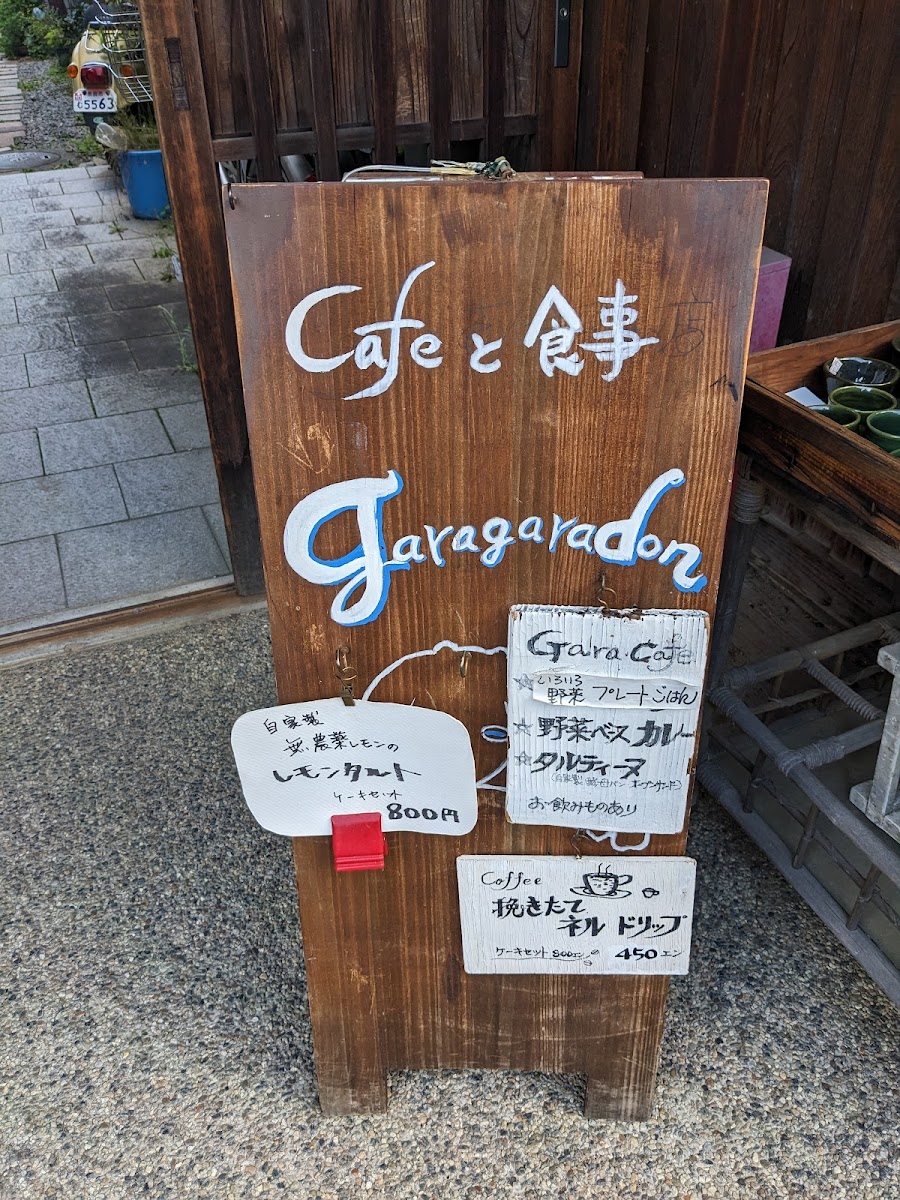 5563
Cafeと食事
garagaradon
Gara.Cafe
☆ いろいろ
野菜 プレートごはん
☆ 野菜ベースカレー
☆ タルティーヌ
オープンサンド)
お飲みものあり
自家製
無農薬レモンの
レモンタルト
ケーキセット
800円
Coffee
挽きたて
ネルドリップ
ケーキセット 800エン
450エン